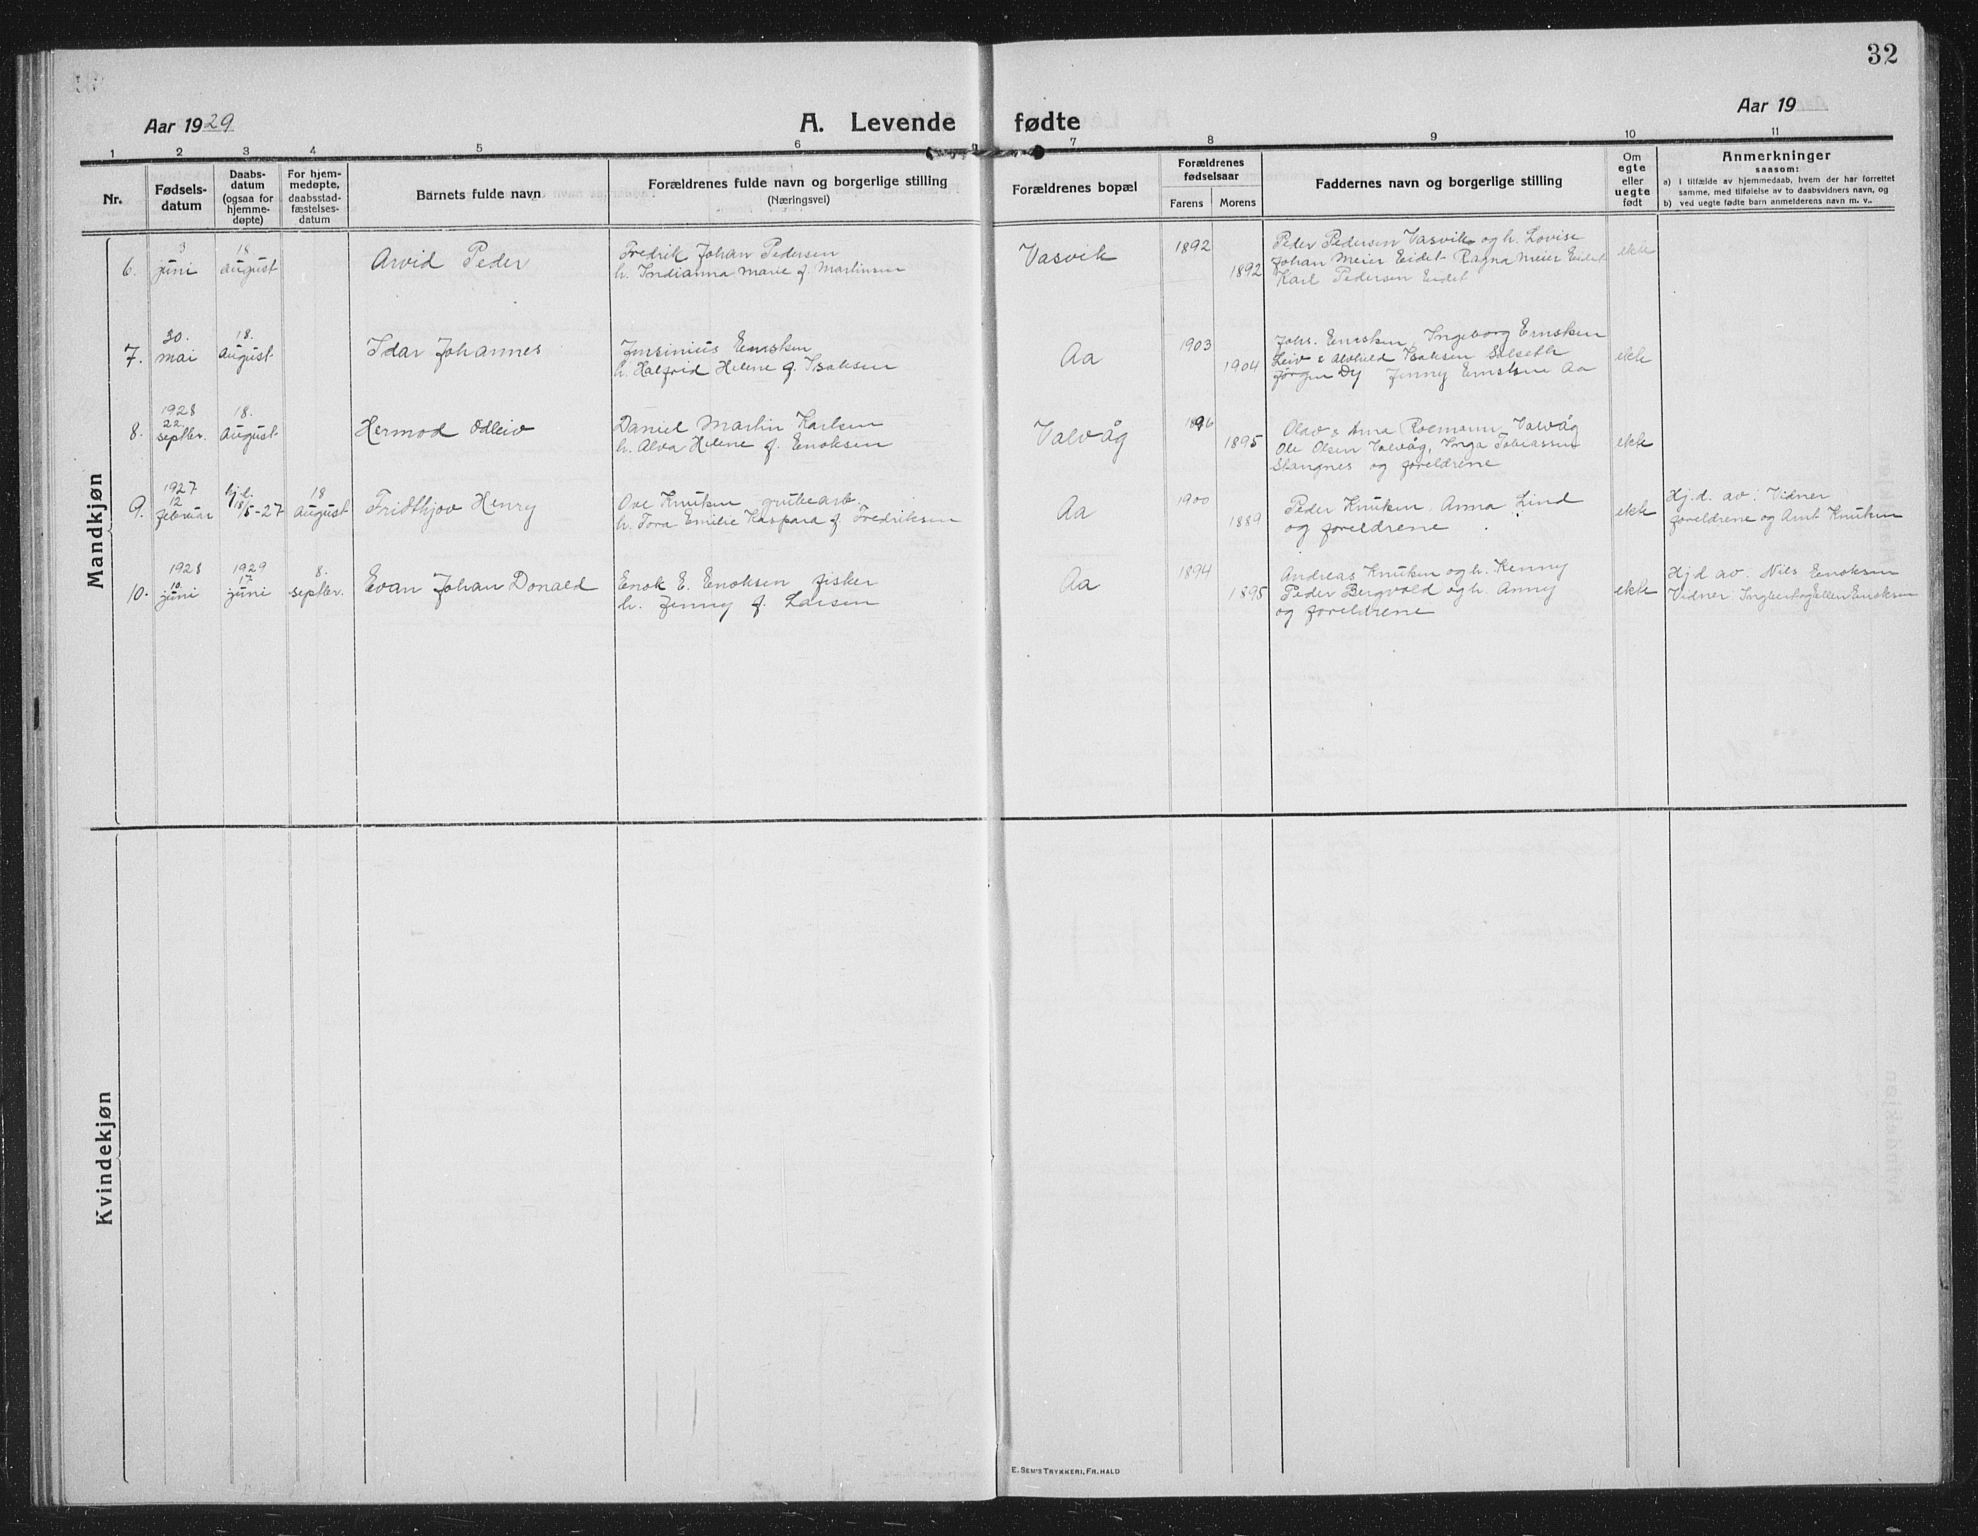 32
Aar 1929
A. Levende fødte
Aar 19
1 2 3 4 5 6 7 8 9 10 11
Nr.
Fødselsdatum
Daabsdatum (ogsaa for hjemmedøpte)
For hjemmedøpte, daabsstadfæstelsesdatum
Barnets fulde navn
Forældrenes fulde navn og borgerlige stilling
(Næringsvei)
Forældrenes bopæl
Forældrenes fødselsaar
Farens Morens
Faddernes navn og borgerlige stilling
Om egte eller uegte født
Anmerkninger
saasom:
a) I tilfælde av hjemmedaab, hvem der har forrettet
samme, med tilføielse av to daabsvidners navn, og
b) ved uegte fødte barn anmelderens navn m. v..
Mandkjøn
6. 3 juni 18 august Arvid Peder
Fredrik Johan Pedersen
h. Indianna Marie f. Martinsen
Vasvik 1892 1892
Peder Pedersen Vasvik og h. Lovise
Johan Meier Eidet Ragna Meier Eidet
Karl Pedersen Eidet
ekte
7. 30. mai 18. august Idar Johannes
h. Halfrid Helene f. Isaksen
Aa 1903 1904
Johs. Ingeborg
Leiv & Alvhild Isaksen
Jørgen Dy Jenny Aa
ekte
8. 1928 22. septbr. 18. august Hermod Odleiv
Daniel Martin Karlsen
h. Alva Helene f. Enoksen
Valvåg 1896 1895
Olav & Anna Valvåg
Ole Olsen Valvåg, Inga Tobiassen
Stangnes og foreldrene
ekte
9. 1927 12 februar hj.d. 18/5-27 18 august Fridthjov Henry
Ove Knutsen grubearb.
h. Tora Emilie Kaspara f. Fredriksen
Aa 1900 1889
Peder Knutsen, Anna Lind
og foreldrene
ekte
Hj.d. av: Vidner
foreldrene og Arnt Knutsen
10. 1928 10. juni 1929 17. juni 8. septbr. Evan Johan Donald
Enok E. Enoksen fisker
h. Jenny f. Larsen
Aa 1894 1895
Andreas Knutsen og h. Kenny
Peder Bergvold og h. Anny
og foreldrene
ekte
Hj.d av. Nils Enoksen
Vidner: Ellen Enoksen
Kvindekjøn
E. SEM'S TRYKKERI, FR. HALD